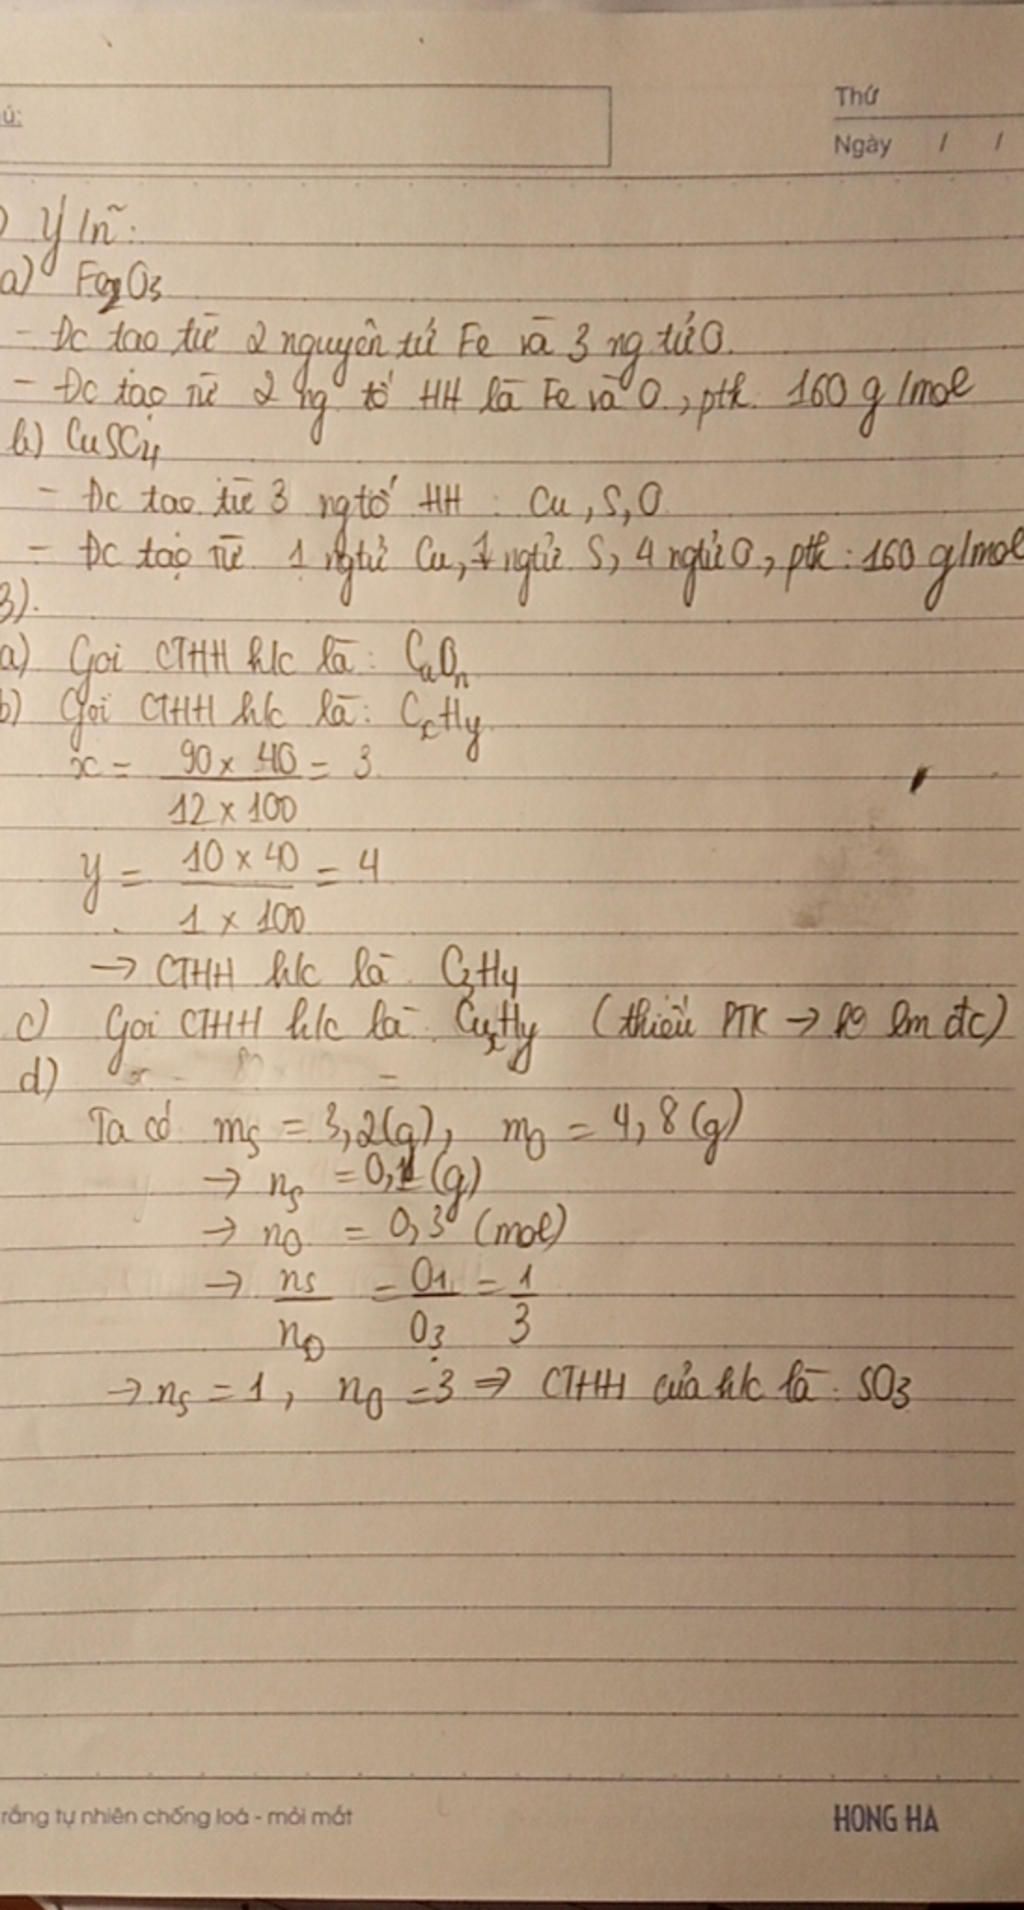 ú:
Thứ
Ngày / /
) Ý ln~:
a) Fe2O3
- Đc tạo từ 2 nguyên tử Fe và 3 ng tử O.
- Đc tạo từ 2 ng tố HH là Fe và O, ptk. 160 g/mol
b) CuSO4
- Đc tạo từ 3 ng tố HH : Cu, S, O
- Đc tạo từ 1 ng tử Cu, 1 ng tử S, 4 ng tử O, ptk : 160 g/mol
3).
a) Gọi CTHH h/c là : CuOn
b) Gọi CTHH h/c là : CxHy
x = 90 x 40 = 3
12 x 100
y = 10 x 40 = 4
1 x 100
→ CTHH h/c là C3H4
c) Gọi CTHH h/c là CuxHy (thiếu PTK → ko lm đc)
d)
Ta có mS = 3,2(g), mO = 4,8(g)
→ nS = 0,1 (g)
→ nO = 0,3 (mol)
→ nS = 0,1 = 1
nO 0,3 3
→ nS = 1, nO = 3 => CTHH của h/c là : SO3
rắng tự nhiên chống loá - mỏi mắt
HONG HA